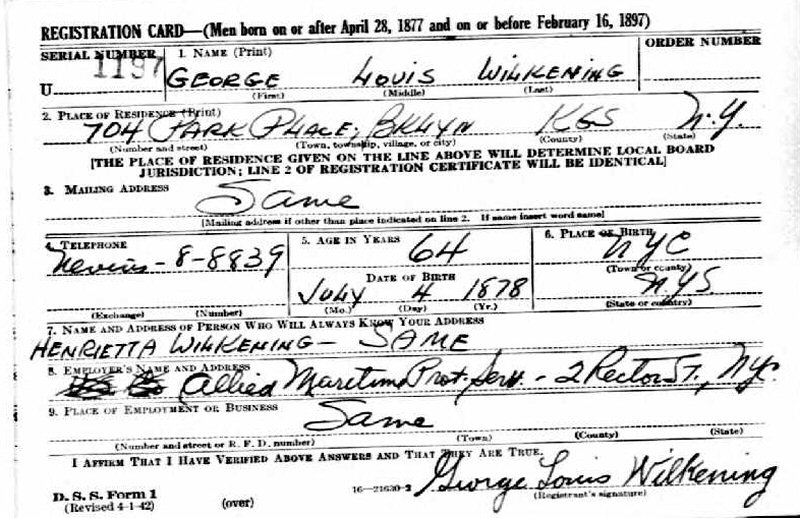 REGISTRATION CARD—(Men born on or after April 28, 1877 and on or before February 16, 1897)
SERIAL NUMBER 1. NAME (Print) ORDER NUMBER
U 1197 GEORGE LOUIS WILKENING
(First) (Middle) (Last)
2. PLACE OF RESIDENCE (Print)
704 PARK PLACE, BKLYN KGS N.Y.
(Number and street) (Town, township, village, or city) (County) (State)
[THE PLACE OF RESIDENCE GIVEN ON THE LINE ABOVE WILL DETERMINE LOCAL BOARD
JURISDICTION; LINE 2 OF REGISTRATION CERTIFICATE WILL BE IDENTICAL]
3. MAILING ADDRESS
Same
[Mailing address if other than place indicated on line 2. If same insert word same]
4. TELEPHONE 5. AGE IN YEARS 64 6. PLACE OF BIRTH
Nevins-8-8839 NYC
DATE OF BIRTH (Town or county)
JULY 4 1878 NYS.
(Exchange) (Number) (Mo.) (Day) (Yr.) (State or country)
7. NAME AND ADDRESS OF PERSON WHO WILL ALWAYS KNOW YOUR ADDRESS
HENRIETTA WILKENING- SAME
8. EMPLOYER'S NAME AND ADDRESS
Allied Maritime Prot. Serv. - 2 Rector ST., NYC
9. PLACE OF EMPLOYMENT OR BUSINESS
Same
(Number and street or R. F. D. number) (Town) (County) (State)
I AFFIRM THAT I HAVE VERIFIED ABOVE ANSWERS AND THAT THEY ARE TRUE.
George Louis Wilkening
D. S. S. Form 1 16—21630-2 (Registrant's signature)
(Revised 4-1-42) (over)